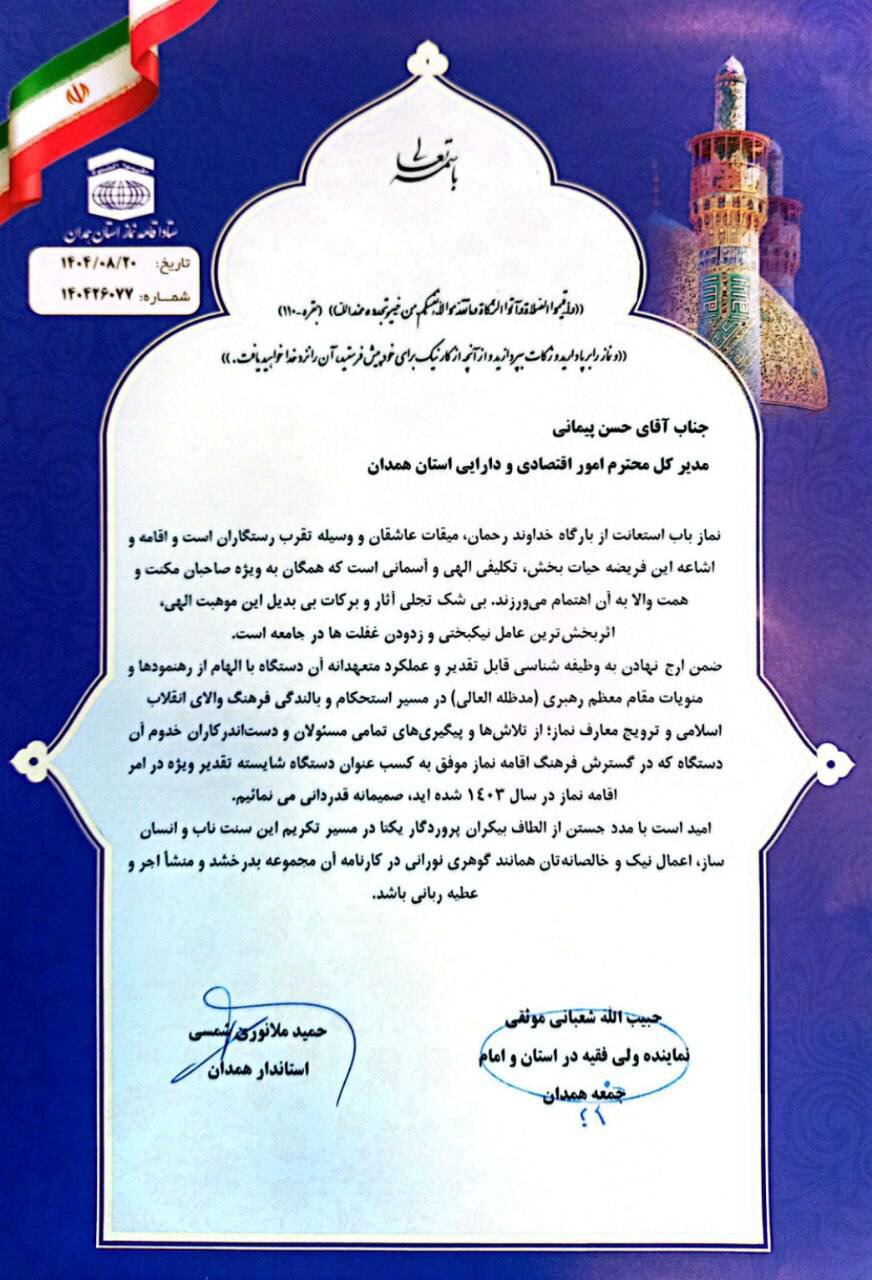 باسمه تعالی
ستاد اقامه نماز استان همدان
تاریخ: ۱۴۰۴/۰۸/۲۰
شماره: ۱۴۰۴۲۶۰۷۷
((واقیموا الصلاة وآتوا الزکاة وما تقدموا لأنفسکم من خیر تجدوه عندالله)) (بقره-۱۱۰)
((و نماز را برپا دارید و زکات بپردازید و از آنچه از کار نیک برای خود پیش فرستید، آن را نزد خدا خواهید یافت.))
جناب آقای حسن پیمانی
مدیر کل محترم امور اقتصادی و دارایی استان همدان
نماز باب استعانت از بارگاه خداوند رحمان، میقات عاشقان و وسیله تقرب رستگاران است و اقامه و
اشاعه این فریضه حیات بخش، تکلیفی الهی و آسمانی است که همگان به ویژه صاحبان مکنت و
همت والا به آن اهتمام می‌ورزند. بی شک تجلی آثار و برکات بی بدیل این موهبت الهی،
اثربخش‌ترین عامل نیکبختی و زدودن غفلت ها در جامعه است.
ضمن ارج نهادن به وظیفه شناسی قابل تقدیر و عملکرد متعهدانه آن دستگاه با الهام از رهنمودها و
منویات مقام معظم رهبری (مدظله العالی) در مسیر استحکام و بالندگی فرهنگ والای انقلاب
اسلامی و ترویج معارف نماز؛ از تلاش‌ها و پیگیری‌های تمامی مسئولان و دست‌اندرکاران خدوم آن
دستگاه که در گسترش فرهنگ اقامه نماز موفق به کسب عنوان دستگاه شایسته تقدیر ویژه در امر
اقامه نماز در سال ۱٤۰۳ شده اید، صمیمانه قدردانی می نمائیم.
امید است با مدد جستن از الطاف بیکران پروردگار یکتا در مسیر تکریم این سنت ناب و انسان
ساز، اعمال نیک و خالصانه‌تان همانند گوهری نورانی در کارنامه آن مجموعه بدرخشد و منشأ اجر و
عطیه ربانی باشد.
حبیب الله شعبانی موثقی
نماینده ولی فقیه در استان و امام
جمعه همدان
حمید ملانوری شمسی
استاندار همدان